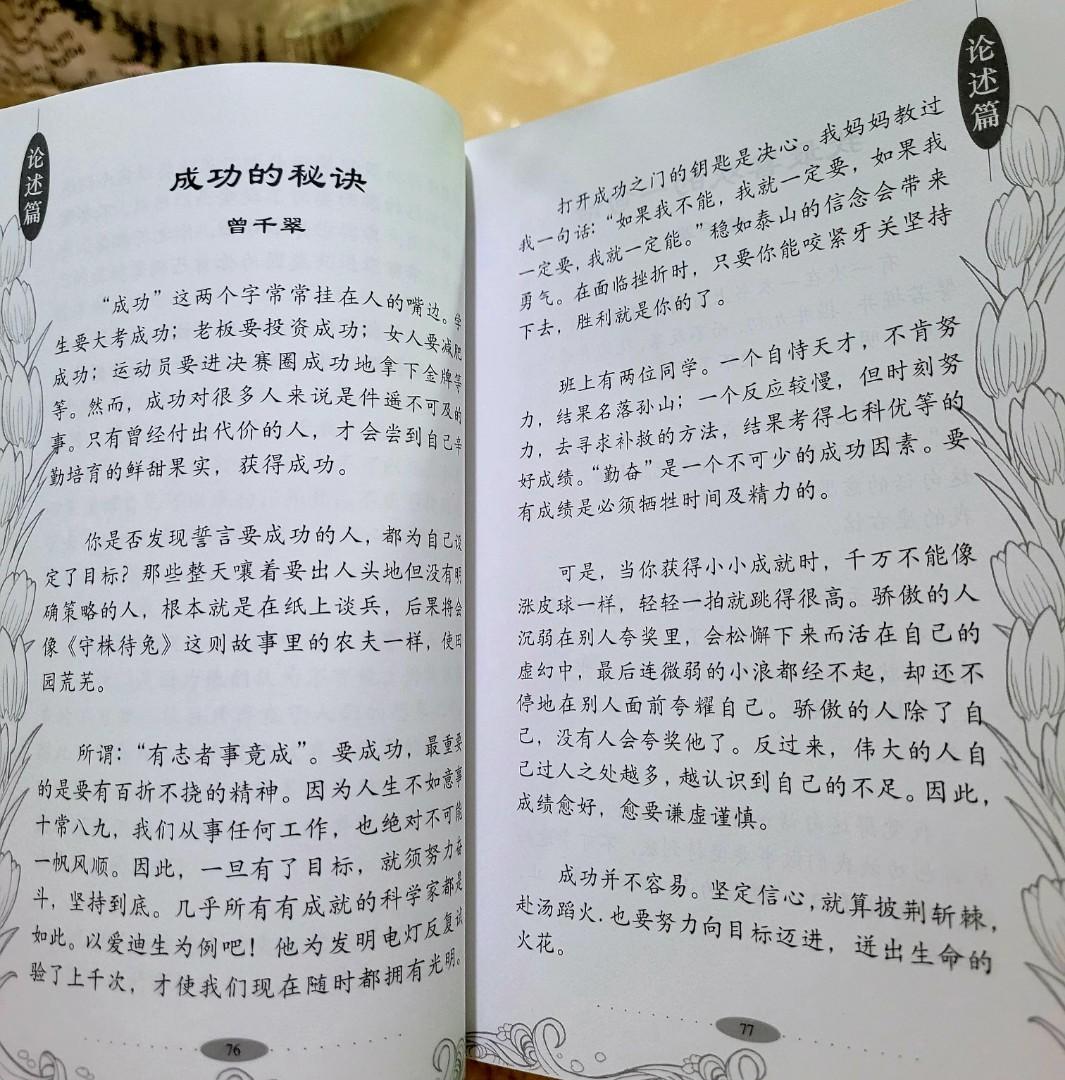 论述篇
成功的秘诀
曾千翠
“成功”这两个字常常挂在人的嘴边。学
生要大考成功；老板要投资成功；女人要减肥
成功；运动员要进决赛圈成功地拿下金牌等
等。然而，成功对很多人来说是件遥不可及的
事。只有曾经付出代价的人，才会尝到自己辛
勤培育的鲜甜果实，获得成功。
你是否发现誓言要成功的人，都为自己设
定了目标？那些整天嚷着要出人头地但没有明
确策略的人，根本就是在纸上谈兵，后果将会
像《守株待兔》这则故事里的农夫一样，使田
园荒芜。
所谓：“有志者事竟成”。要成功，最重要
的是要有百折不挠的精神。因为人生不如意事
十常八九，我们从事任何工作，也绝对不可能
一帆风顺。因此，一旦有了目标，就须努力奋
斗，坚持到底。几乎所有有成就的科学家都是
如此。以爱迪生为例吧！他为发明电灯反复试
验了上千次，才使我们现在随时都拥有光明。
76
论述篇
打开成功之门的钥匙是决心。我妈妈教过
我一句话：“如果我不能，我就一定要，如果我
一定要，我就一定能。”稳如泰山的信念会带来
勇气。在面临挫折时，只要你能咬紧牙关坚持
下去，胜利就是你的了。
班上有两位同学。一个自恃天才，不肯努
力，结果名落孙山；一个反应较慢，但时刻努
力，去寻求补救的方法，结果考得七科优等的
好成绩。“勤奋”是一个不可少的成功因素。要
有成绩是必须牺牲时间及精力的。
可是，当你获得小小成就时，千万不能像
涨皮球一样，轻轻一拍就跳得很高。骄傲的人
沉弱在别人夸奖里，会松懈下来而活在自己的
虚幻中，最后连微弱的小浪都经不起，却还不
停地在别人面前夸耀自己。骄傲的人除了自
己，没有人会夸奖他了。反过来，伟大的人自
己过人之处越多，越认识到自己的不足。因此，
成绩愈好，愈要谦虚谨慎。
成功并不容易。坚定信心，就算披荆斩棘，
赴汤蹈火.也要努力向目标迈进，迸出生命的
火花。
77